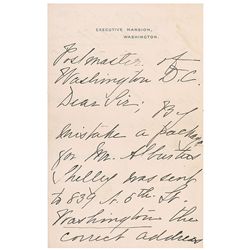 EXECUTIVE MANSION,
WASHINGTON.
Postmaster of
Washington D.C.
Dear Sir; By
mistake a package
for Mr. Albertus
Shelley was sent
to 839 N. 6th. St.
Washington the
correct address